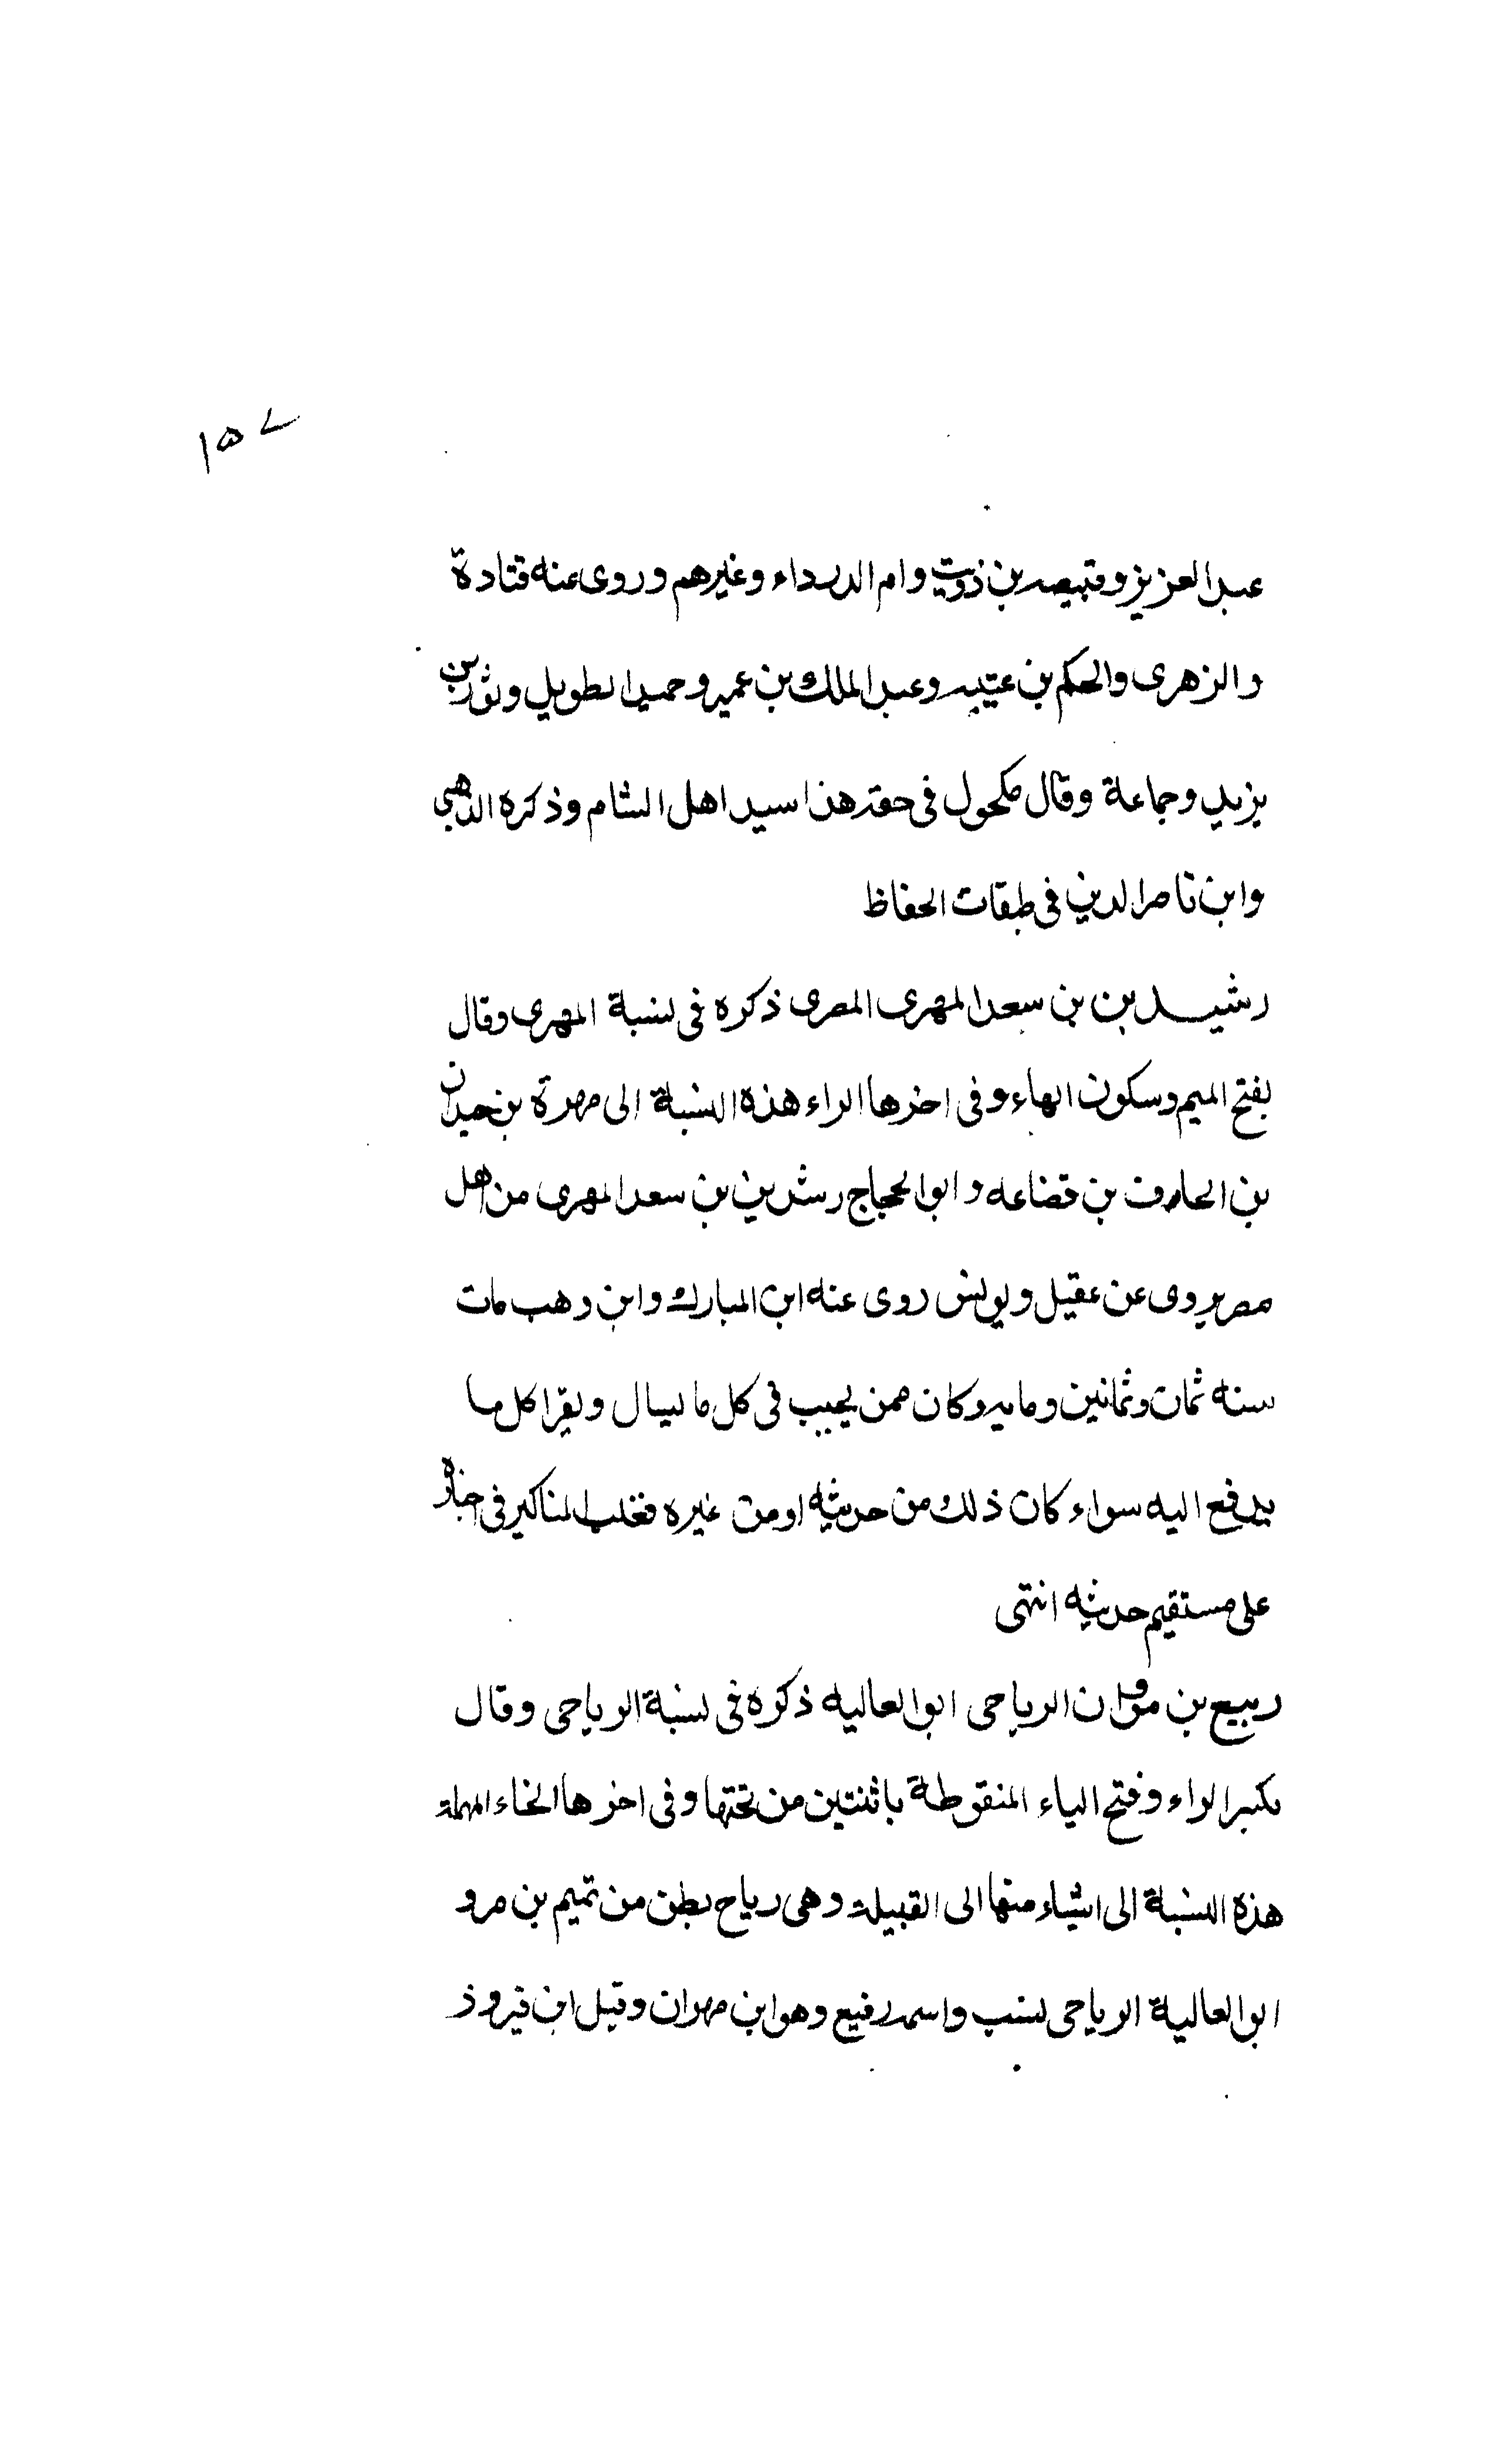 ١٥٧
عبد العزيز وقبيصه بن ذويب وام الدرداء وغيرهم وروى عنه قتادة
والزهرى والحكم بن عتيبه وعبد الملك بن عمير وحميد الطويل وثور بن
يزيد وجماعة وقال مكحول فى حقه هذا سيد اهل الشام وذكره الذهبى
وابن ناصر الدين فى طبقات الحفاظ
رشيدين بن سعد المهرى المصرى ذكره فى نسبة المهرى وقال
بفتح الميم وسكون الهاء وفى اخرها الراء هذه النسبة الى مهرة بن حيدان
بن الحارث بن قضاعه وابو الحجاج رشدين بن سعد المهرى من اهل
مصر يروى عن عقيل ويونس روى عنه ابن المبارك وابن وهب مات
سنه ثمان وثمانين ومايه وكان ممن يجيب فى كل ما يسال ويقرا كل ما
يدفع اليه سواء كان ذلك من حديثه او من غيره فغلب المناكير فى اخباره
على مستقيم حديثه انتهى
ربيع بن الرياحى ابو العاليه ذكره فى نسبة الرياحى وقال
بكسر الراء وفتح الياء المنقوطة باثنتين من تحتها وفى اخرها الخاء المهملة
هذه النسبة الى اشياء منها الى القبيلة وهى رياح بطن من تميم بن مر و
ابو العالية الرياحى نسب واسمه رفيع وهو ابن مهران وقيل ابن فيروز